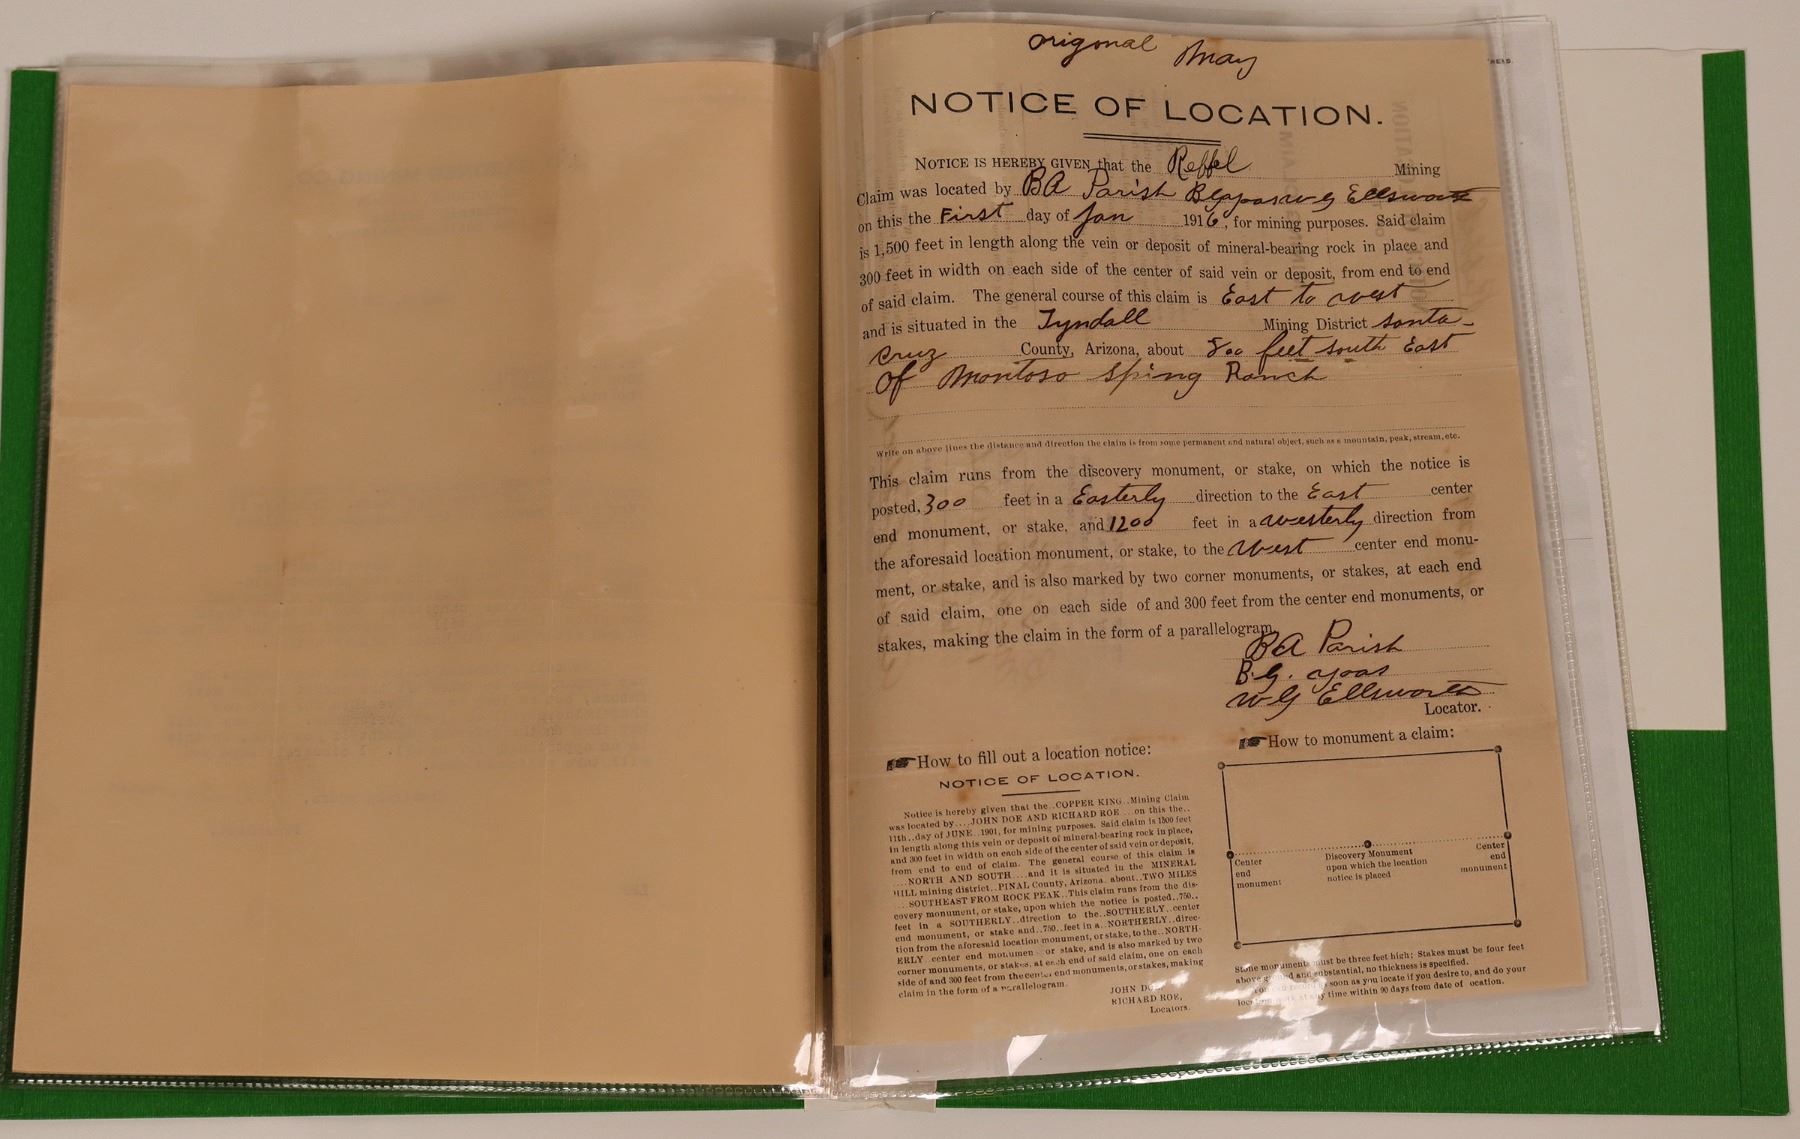 Origonal May
NOTICE OF LOCATION.
NOTICE IS HEREBY GIVEN that the Reffel Mining
Claim was located by BA Parish BG yoas W G Ellsworth
on this the First day of Jan 1916, for mining purposes. Said claim
is 1,500 feet in length along the vein or deposit of mineral-bearing rock in place and
300 feet in width on each side of the center of said vein or deposit, from end to end
of said claim. The general course of this claim is East to west
and is situated in the Tyndall Mining District Santa-
Cruz County, Arizona, about 800 feet South East
Of Montoso Sping Ranch
Write on above lines the distance and direction the claim is from some permanent and natural object, such as a mountain, peak, stream, etc.
This claim runs from the discovery monument, or stake, on which the notice is
posted, 300 feet in a Easterly direction to the East center
end monument, or stake, and 1200 feet in a westerly direction from
the aforesaid location monument, or stake, to the West center end monu-
ment, or stake, and is also marked by two corner monuments, or stakes, at each end
of said claim, one on each side of and 300 feet from the center end monuments, or
stakes, making the claim in the form of a parallelogram
BA Parish
B.G. yoas
W G Ellsworth
Locator.
How to fill out a location notice:
NOTICE OF LOCATION.
Notice is hereby given that the..COPPER KING..Mining Claim
was located by....JOHN DOE AND RICHARD ROE...on this the..
11th..day of JUNE..1901, for mining purposes. Said claim is 1500 feet
in length along this vein or deposit of mineral-bearing rock in place,
and 300 feet in width on each side of the center of said vein or deposit,
from end to end of claim. The general course of this claim is
....NORTH AND SOUTH....and it is situated in the MINERAL
HILL mining district..PINAL County, Arizona, about..TWO MILES
...SOUTHEAST FROM ROCK PEAK..This claim runs from the dis-
covery monument, or stake, upon which the notice is posted..750..
feet in a SOUTHERLY..direction to the..SOUTHERLY..center
end monument, or stake and..750..feet in a..NORTHERLY..direc-
tion from the aforesaid location monument, or stake, to the..NORTH-
ERLY..center end monumen or stake, and is also marked by two
corner monuments, or stakes, at each end of said claim, one on each
side of and 300 feet from the center end monuments, or stakes, making
claim in the form of a parallelogram.
JOHN DOE,
RICHARD ROE,
Locators.
How to monument a claim:
Center end monument
Discovery Monument upon which the location notice is placed
Center end monument
Stone monuments must be three feet high: Stakes must be four feet
above ground and substantial, no thickness is specified.
soon as you locate if you desire to, and do your
time within 90 days from date of ocation.